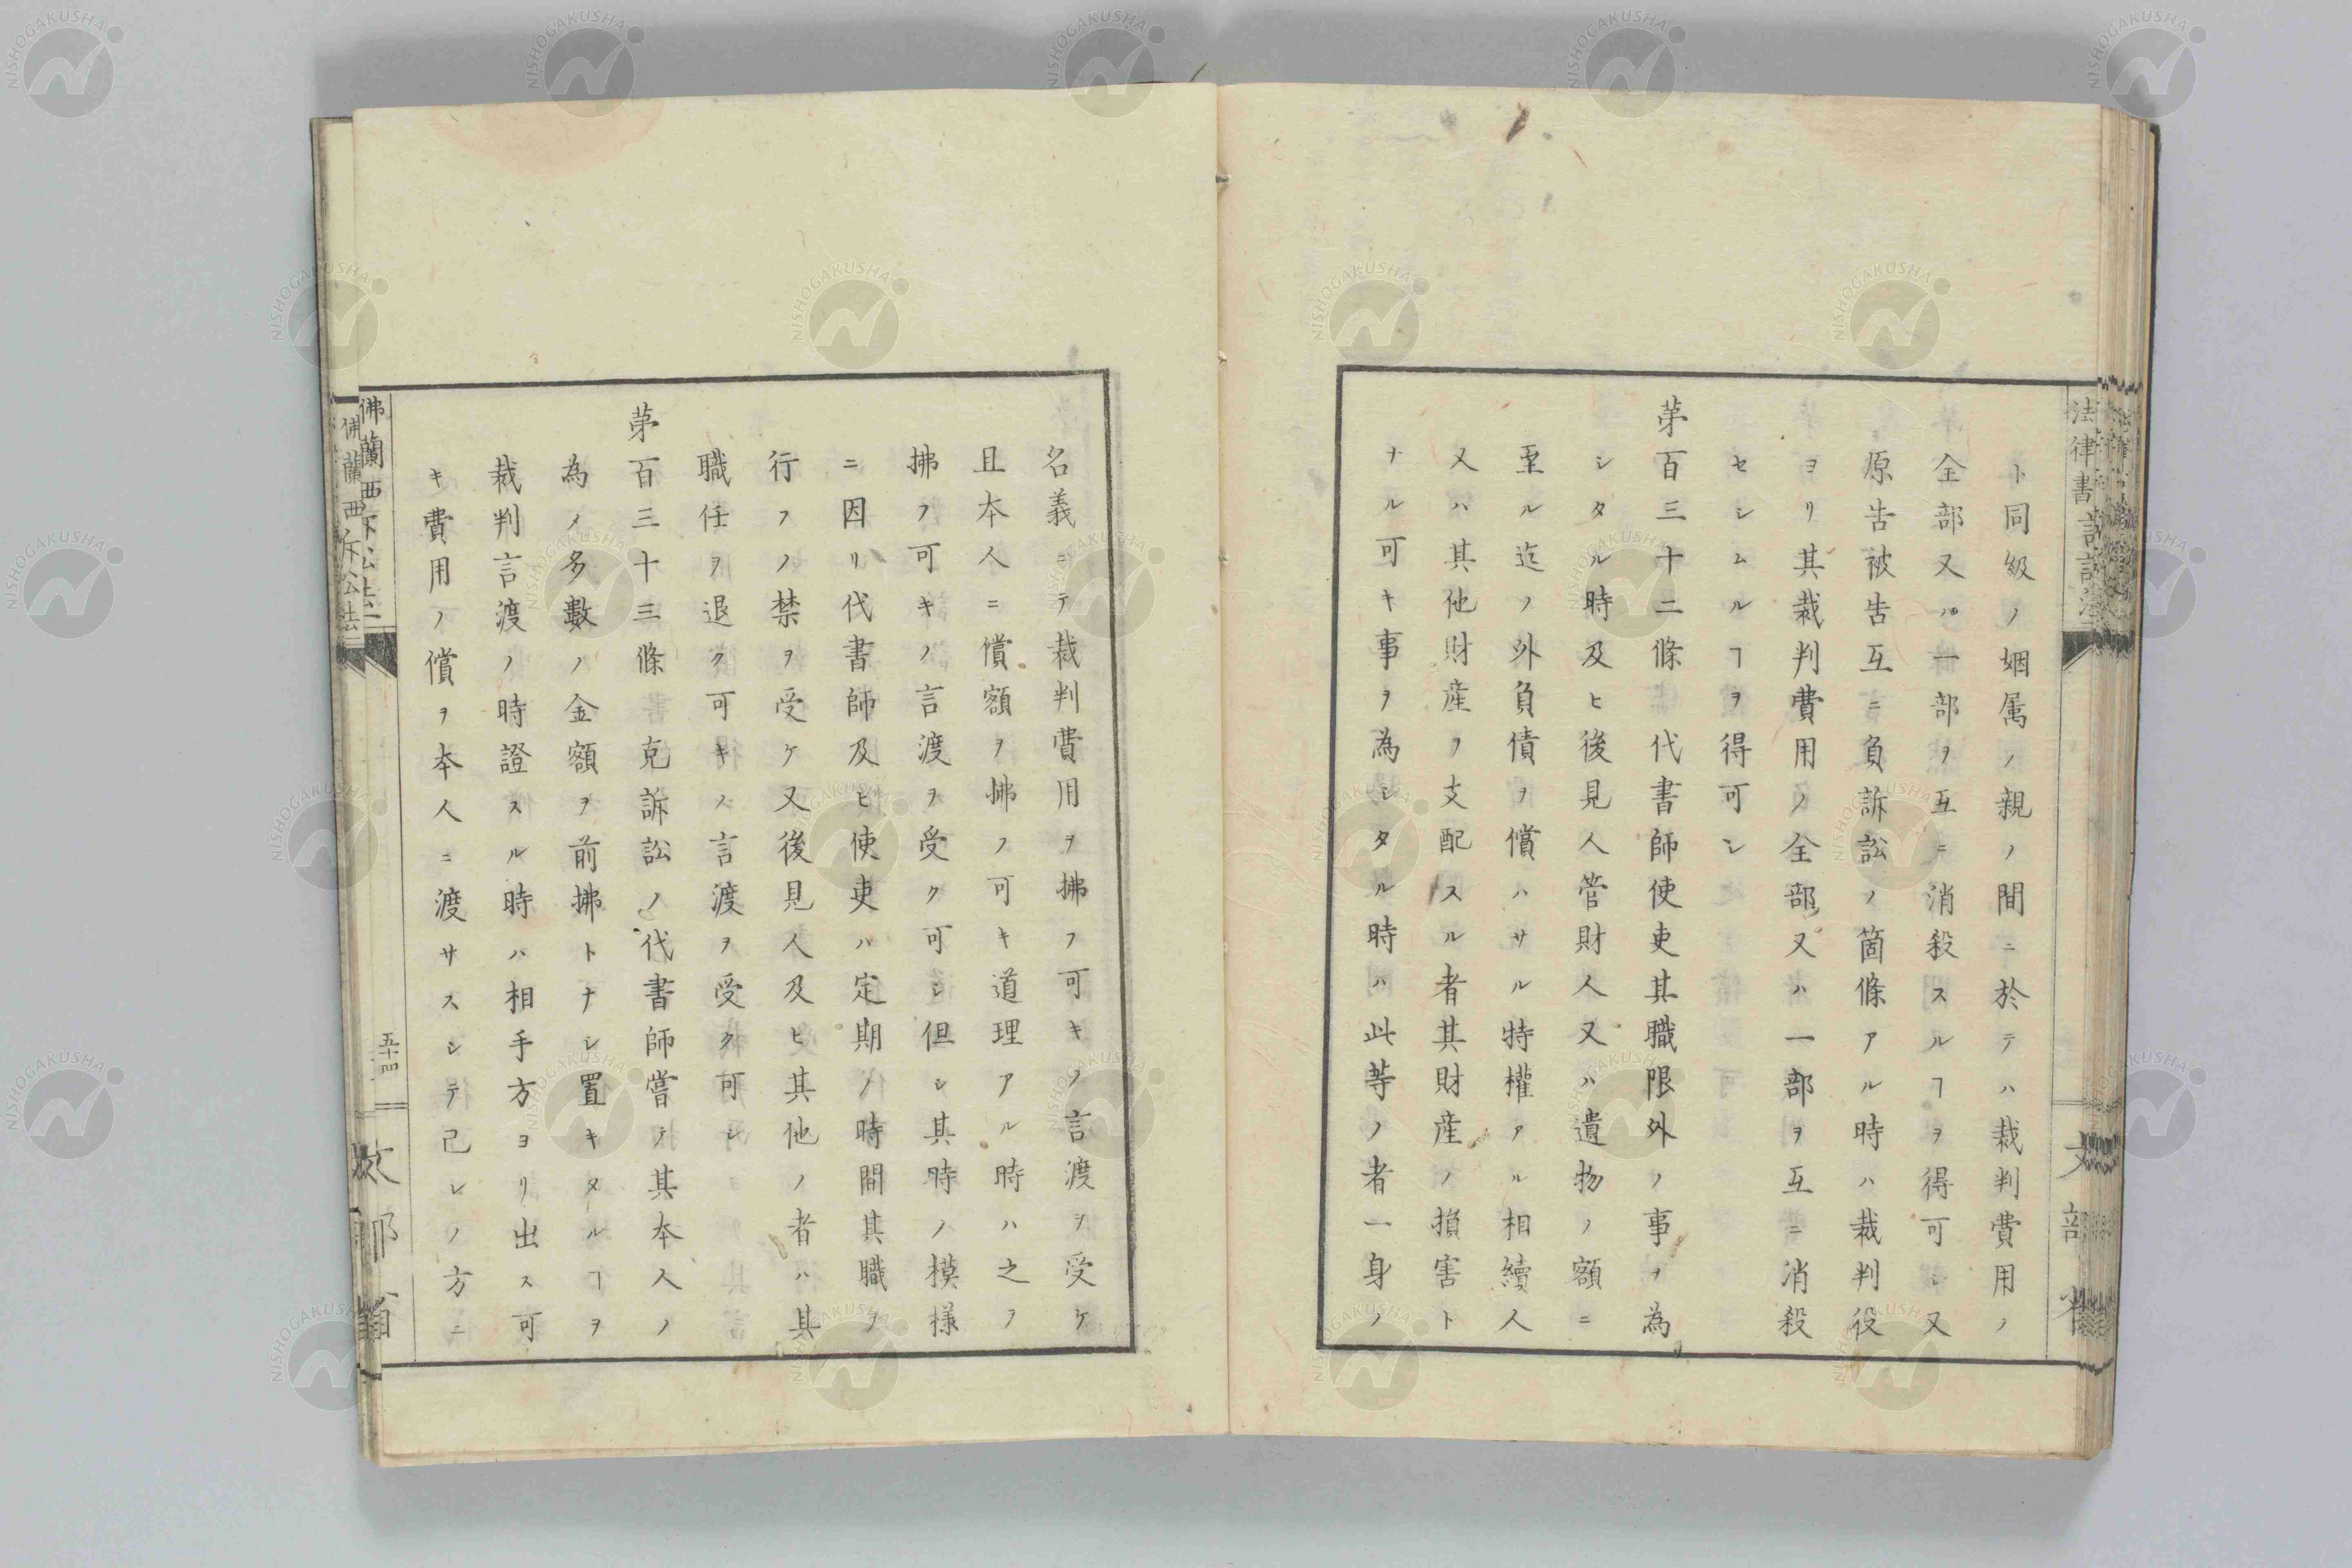 ト同級ノ姻属ノ親ノ間ニ於テハ裁判費用ノ
全部又ハ一部ヲ互ニ消殺スルヿヲ得可シ又
原告被告互ニ負訴訟ノ箇條アル時ハ裁判役
ヨリ其裁判費用ノ全部又ハ一部ヲ互ニ消殺
セシムルヿヲ得可シ
第百三十二條代書師使吏其職限外ノ事ヲ為
シタル時及ヒ後見人管財人又ハ遺物ノ額ニ
至ル迄ノ外負債ヲ償ハサル特權アル相續人
又ハ其他財産ヲ支配スル者其財産ノ損害ト
ナル可キ事ヲ為シタル時ハ此等ノ者一身ノ
名義ニテ裁判費用ヲ拂フ可キノ言渡ヲ受ケ
且本人ニ償額ヲ拂フ可キ道理アル時ハ之ヲ
拂フ可キノ言渡ヲ受ク可シ但シ其時ノ模様
ニ因リ代書師及ヒ使吏ハ定期ノ時間其職ヲ
行フノ禁ヲ受ケ又後見人及ヒ其他ノ者ハ其
職任ヲ退ク可キノ言渡ヲ受ク可シ
第百三十三條克訴訟ノ代書師嘗テ其本人ノ
為ノ多數ノ金額ヲ前拂トナシ置キタルヿヲ
裁判言渡ノ時證スル時ハ相手方ヨリ出ス可
キ費用ノ償ヲ本人ニ渡サスシテ己レノ方ニ
佛蘭西訴訟法
五十四
NISHOGAKUSHA